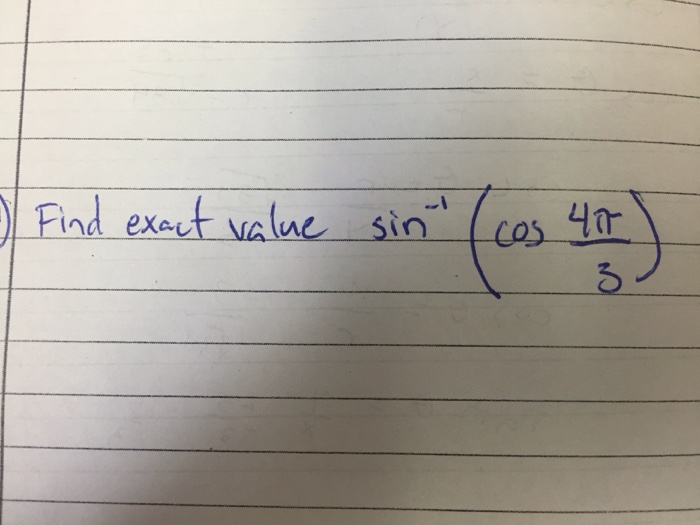 ) Find exact value sin⁻¹ (cos 4π/3)